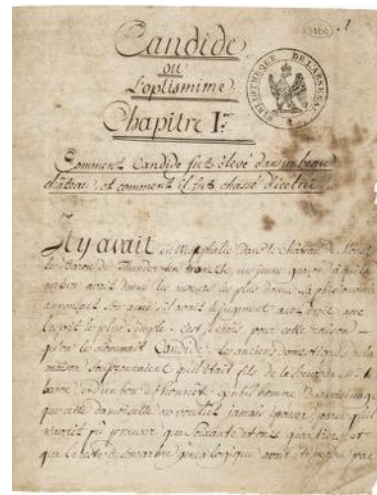 3160 1
Candide
ou
L'optimisme.
Chapitre Ier
BIBLIOTHEQUE DE L'ARSENAL
Comment Candide fut élevé dans un beau
château, et comment il fut chassé d'icelui.
Il y avait en Westphalie dans le château de
le Baron de Thunder-ten-tronckh, un jeune garçon à qui la
nature avait donné les mœurs les plus douces. sa phisionomie
annonçait son âme; il avait le jugement assez droit avec
l'esprit le plus simple. c'est je crois pour cette raison
qu'on le nommait Candide. les anciens domestiques de la
maison soupçonnaient qu'il était fils de la sœur de M. le
baron, et d'un bon et honnête gentilhomme du voisinage
que cette demoiselle ne voulut jamais épouser parce qu'il
n'avait pû prouver que soixante et onze quartiers, et
que le reste de son arbre généalogique avait été perdu par